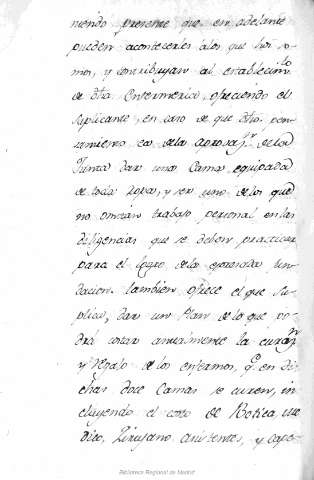 niendo presente que en adelante
pueden acontecerles à los que hoi so-
mos, y contribuyan al establecimto
de dha Enfermeria ofreciendo el
suplicante, en caso de que dho pen-
samiento sea de la aprovaⁿ de la
Junta dar una Cama equipada
de toda Ropa, y ser uno de los que
no omitan trabajo personal en las
diligencias que se deben practicar
para el logro de la expresada fun-
dacion. Tambien ofrece el que su-
plica, dar un Plan de lo que po-
drá costar anualmente la curaⁿ
y regalo de los enfermos, q.e en di-
chas doce Camas se curen, in-
cluyendo el coste de Botica, Me-
dico, Zirujano asistentes, y Cape-
Biblioteca Regional de Madrid